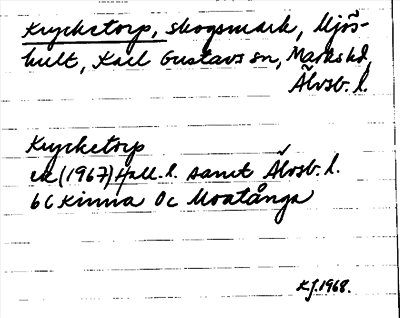 Kycketorp, skogsmark, Mjös-
hult, Karl Gustavs sn, Marks hd,
Älvsb. l.
Kycketorp
ek (1967) Hall. l. samt Älvsb. l.
6C Kinna 0c Moatånga
KJ. 1968.